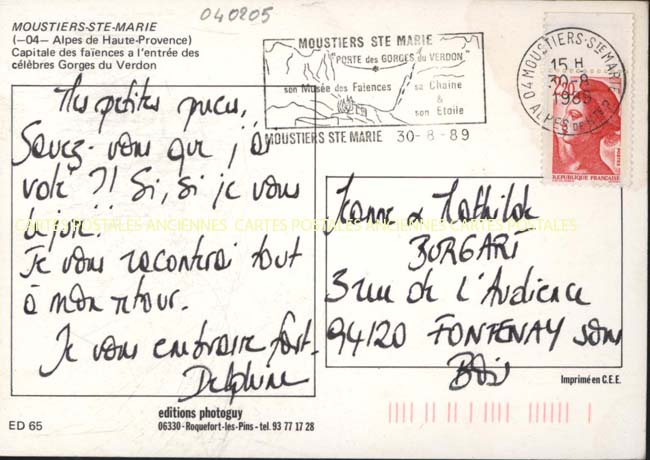 040205
MOUSTIERS-STE-MARIE
(—04— Alpes de Haute-Provence)
Capitale des faïences a l'entrée des
célèbres Gorges du Verdon
MOUSTIERS STE MARIE
"PORTE des GORGES du VERDON"
son Musée des Faïences
sa Chaîne
&
son Etoile
MOUSTIERS STE MARIE 30-8-89
04 MOUSTIERS-STE MARIE
15 H
30-8
1989
ALPES DE HTE P.
2,20
POSTES
REPUBLIQUE FRANÇAISE
Mes petites puces,
Savez-vous que j'ai
volé ?! Si, si je vous
le jure!!
Je vous raconterai tout
à mon retour.
Je vous embrasse fort.
Delphine
Jeanne & Mathilde
BORGART
3 rue de l'Audience
94120 FONTENAY sous
Bois
CARTES POSTALES ANCIENNES CARTES POSTALES ANCIENNES CARTES POSTALES
Imprimé en C.E.E.
ED 65
editions photoguy
06330-Roquefort-les-Pins - tel. 93 77 17 28